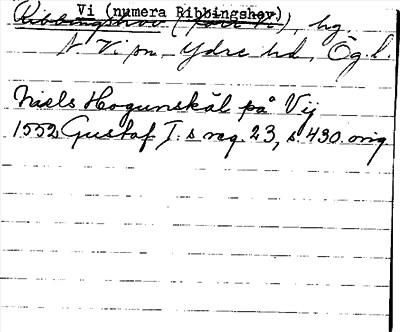 Vi (numera Ribbingshov)
Ribbingshov (förr Vi), hg.
N. Vi sn, Ydre hd, Ög. l.
Niels Hogunskäl på Vij
1552 Gustaf I:s reg. 23, s. 430. orig.